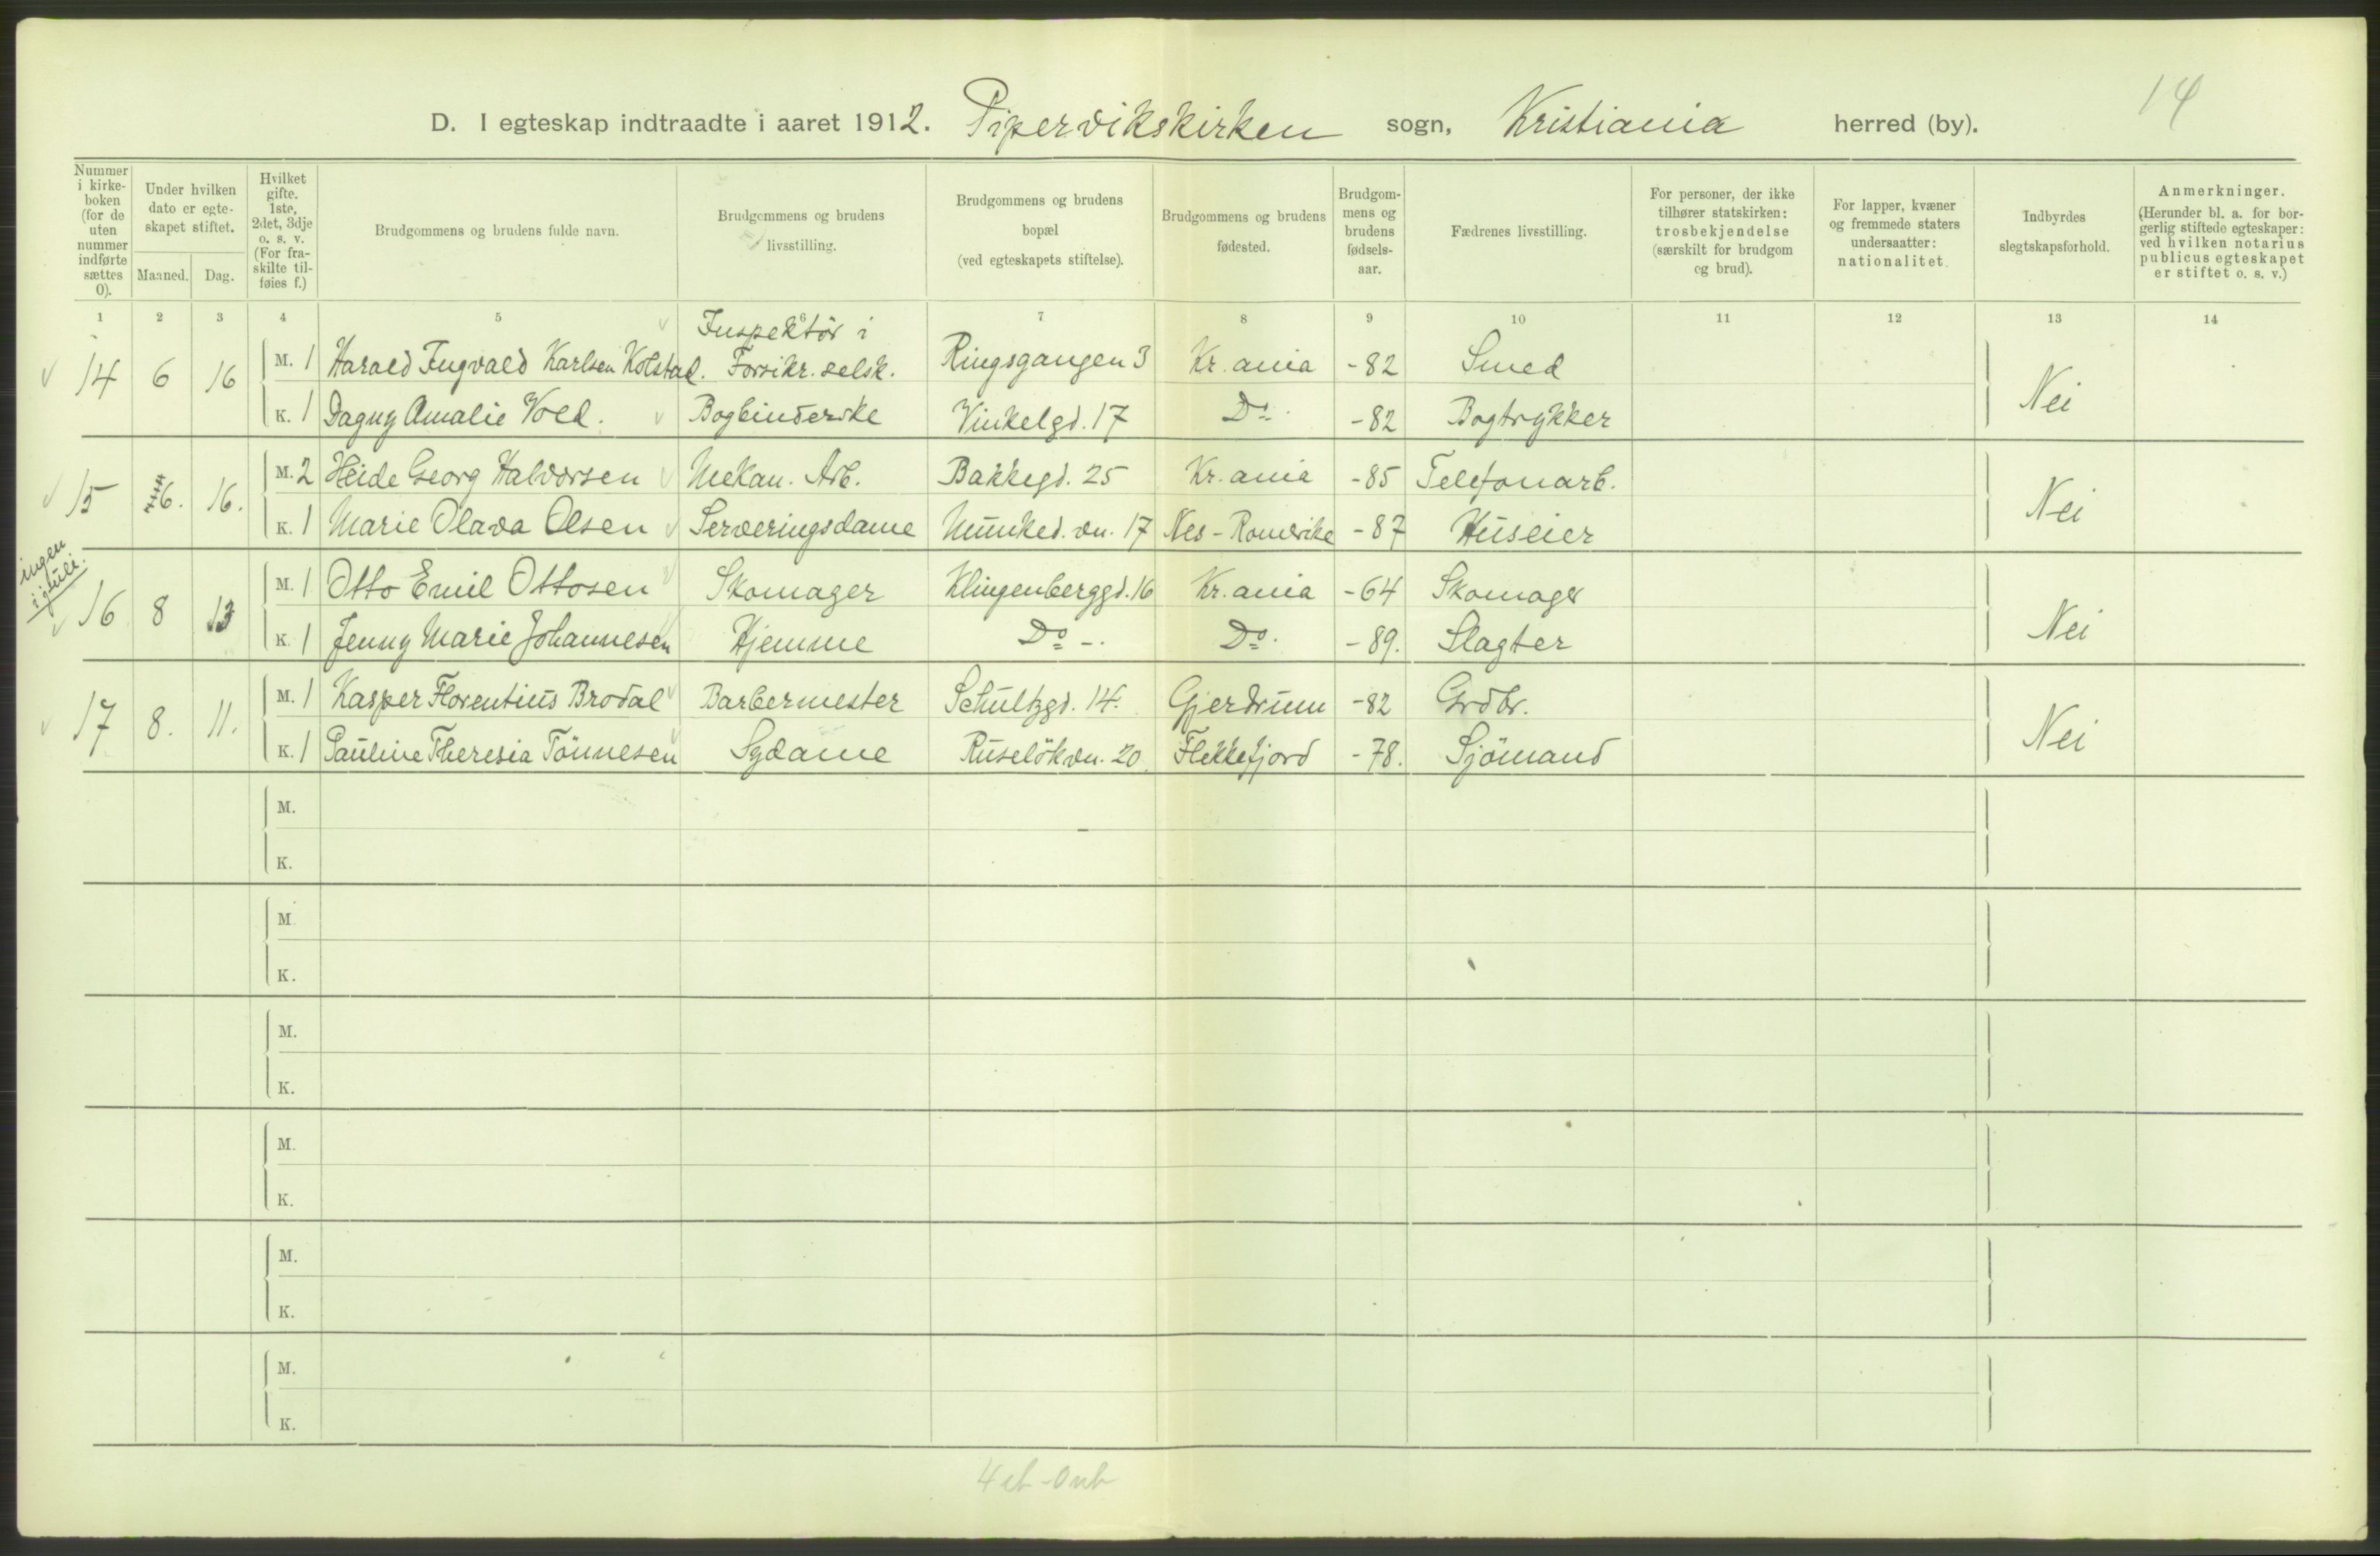 14
D. I egteskap indtraadte i aaret 1912. Pipervikskirken sogn, Kristiania herred (by).
Nummer i kirke-boken (for de uten nummer indførte sættes 0).
Under hvilken dato er egte-skapet stiftet.
Maaned. Dag.
Hvilket gifte. 1ste, 2det, 3dje o. s. v. (For fra-skilte til-føies f.)
Brudgommens og brudens fulde navn.
Brudgommens og brudens livsstilling.
Brudgommens og brudens bopæl (ved egteskapets stiftelse).
Brudgommens og brudens fødested.
Brudgom-mens og brudens fødsels-aar.
Fædrenes livsstilling.
For personer, der ikke tilhører statskirken: trosbekjendelse (særskilt for brudgom og brud).
For lapper, kvæner og fremmede staters undersaatter: nationalitet.
Indbyrdes slegtskapsforhold.
Anmerkninger. (Herunder bl. a. for bor-gerlig stiftede egteskaper: ved hvilken notarius publicus egteskapet er stiftet o. s. v.)
1 2 3 4 5 6 7 8 9 10 11 12 13 14
14 6 16 M. 1 Harald Ingvald Karlsen Kolstad. Inspektör i Forsikr. selsk. Ringsgangen 3 Kr.ania -82 Smed Nei
K. 1 Dagny Amalie Vold. Bogbinderske Vinkelgd. 17 Do. -82 Bogtrykker
15 6. 16. M. 2 Heide Georg Halvorsen Mekan. Arb. Bakkegd. 25 Kr.ania -85 Telefonarb. Nei
K. 1 Marie Olava Olsen Serveringsdame Munked. vn. 17 Nes - Romerike -87 Huseier
ingen i juli.
16 8 13 M. 1 Otto Emil Ottosen Skomager Klingenberggd. 16 Kr.ania -64 Skomager Nei
K. 1 Jenny Marie Johannesen Hjemme Do -. Do. -89. Slagter
17 8. 11. M. 1 Kasper Florentius Brodal Barbermester Schultzgd. 14. Gjerdrum -82 Grdbr. Nei
K. 1 Pauline Theresia Tönnesen Sydame Ruselökvn. 20. Flekkefjord -78. Sjömand
M.
K.
M.
K.
M.
K.
M.
K.
M.
K.
M.
K.